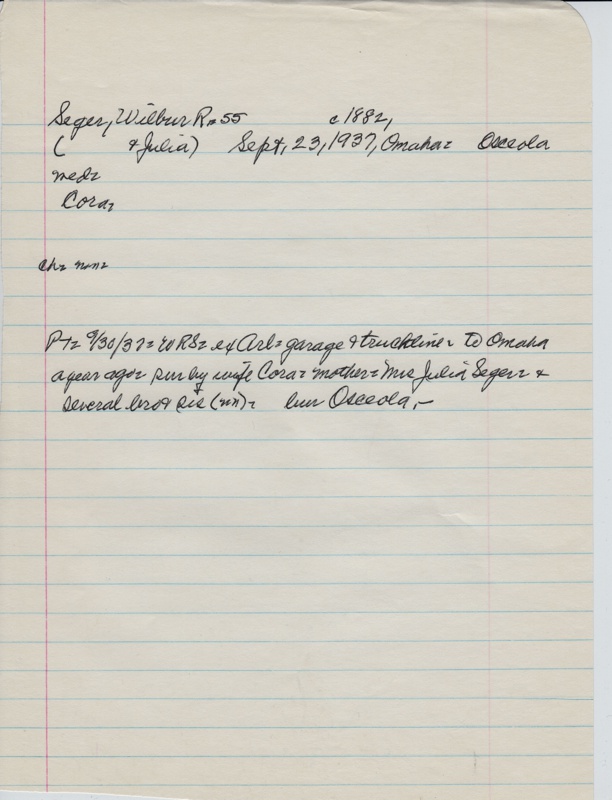 Seger, Wilbur R= 55 c1882,
( & Julia) Sept, 23, 1937, Omaha= Osceola
med=
Cora=
ch= non=
Pt= 9/30/37= WRS= ex Arl= garage & truckline= to Omaha
a year ago= sur by wife Cora= mother= Mrs Julia Seger= &
several bro & sis (nn)= bur Osceola,-